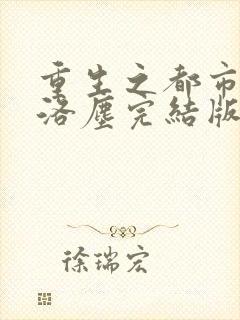 重生之都市
洛塵完結版
徐瑞宏